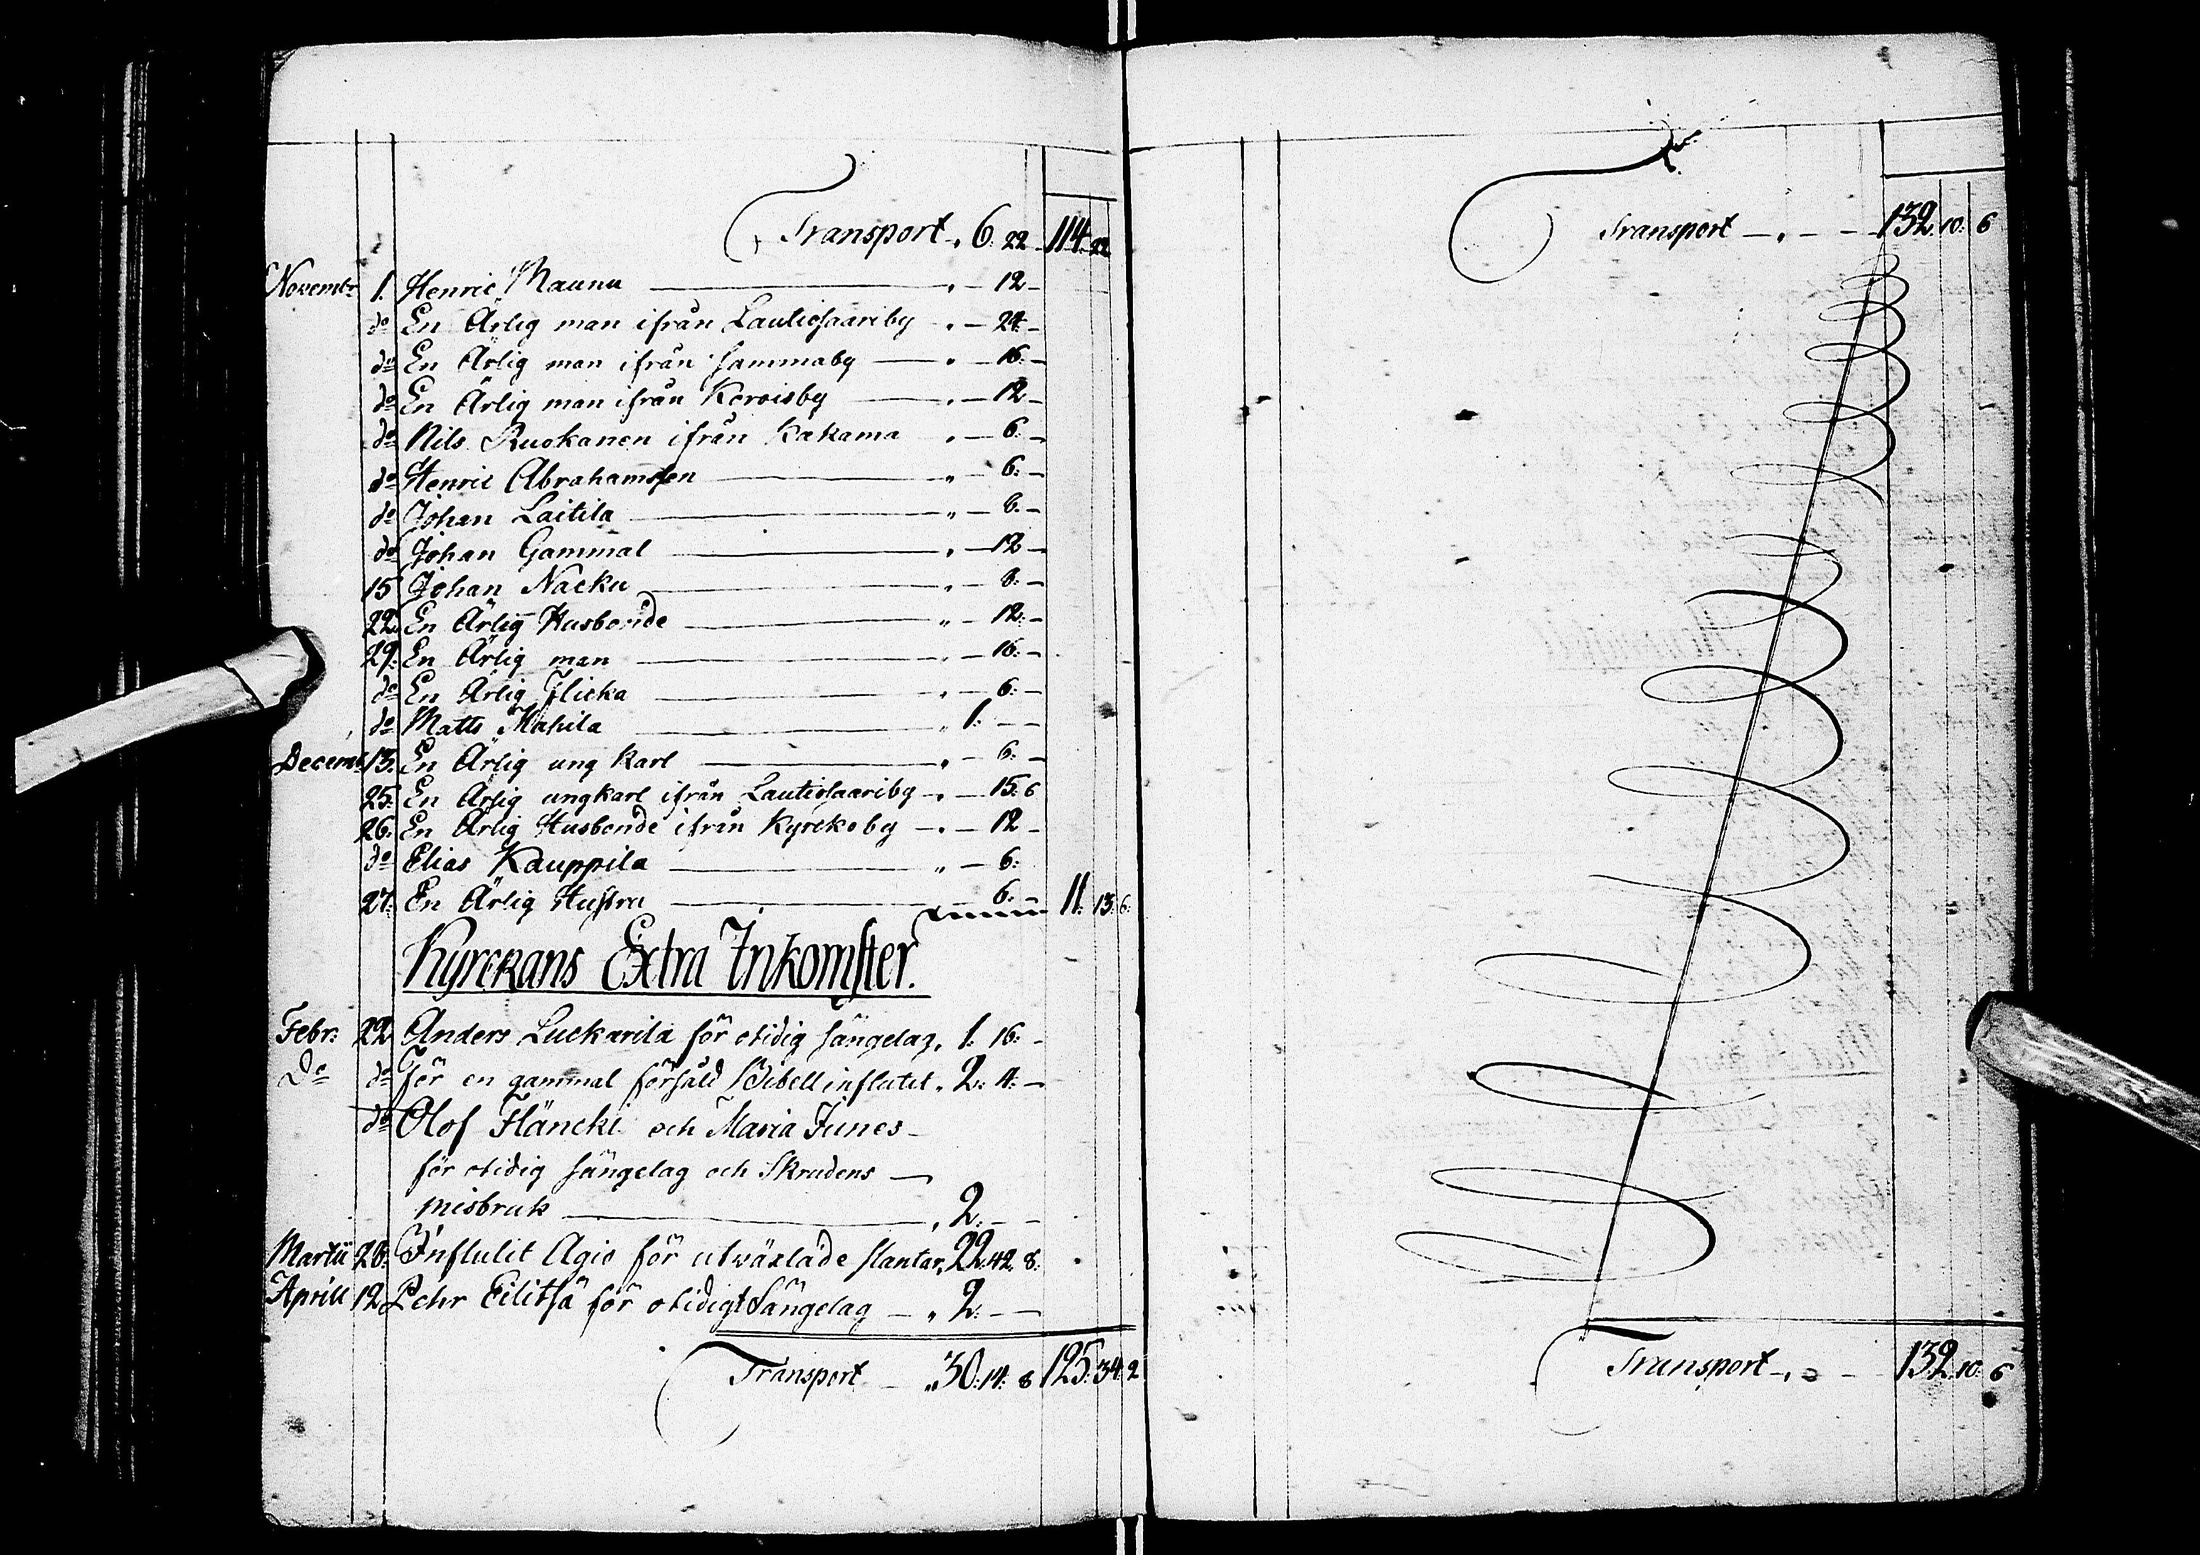 Transport „ 6. 22 – 114. 22
Novembr 1. Henric Maunu „ – 12 –
do En Ärlig man ifrån Lautiosaariby „ – 24 –
do En Ärlig man ifrån sammaby „ – 16. –
do En Ärlig man ifrån Koroisby „ – 12 –
do Nils Ruokanen ifrån Kakama „ – 6. –
do Henric Abrahamsson „ – 6. –
do Johan Laitila „ – 8. –
do Johan Gammal „ – 12 –
15 Johan Nacku „ – 8. –
22. En Ärlig Husbonde „ – 12. –
29. En Ärlig man „ – 16. –
do En Ärlig Flicka „ – 6. –
do Matts Mahila „ 1. – –
Decemb. 13. En Ärlig ung Karl „ – 6. –
25. En Ärlig ungkarl ifrån Lautiosaariby „ – 15. 6
26. En Ärlig Husbonde ifrån Kyrckoby „ – 12 –
do Elias Kauppila „ – 6.
27. En Ärlig Hustru 6. – 11. 13. 6.
Kyrckans Extra Inkomster.
Febr: 22 Anders Luckarila för otidig sängelag, 1. 16. –
Do do För en gammal försåld Bibell influtit „ 2. 4. –
do Olof Fläncki och Maria Junes
för otidig sängelag och Skrudens
misbruk „ 2. – –
Martii 28. Influtit Agio för utväxlade slantar, 22. 42. 8.
Aprill 12. Pehr Eilitsä för otidigt Sängelag – „ 2. – –
Transport „ 30. 14. 8 125. 34. 2
Transport – „ – – 132. 10. 6
Transport – „ – – 132. 10. 6